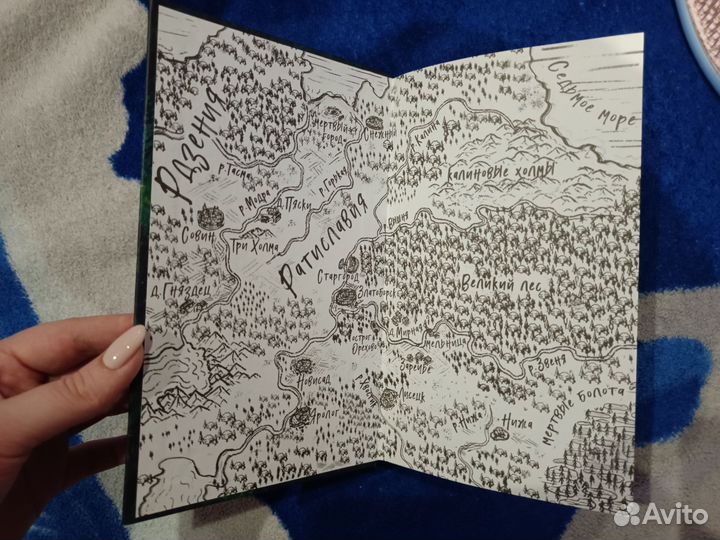 Рдзения
Мертвый
город
Снежный
р. Тасма
р. Модра
д. Пяски
р. Горькая
Совин
Три Холма
Ратиславия
д. Гняздец
Старгород
Златоборск
острог
Орехово
Новисад
Ярлог
Седмое море
Калиновые холмы
Вишня
Великий лес
д. Мирная
Мельница
Заречье
р. Звеня
Лисецк
р. Нижа
Нижа
Мертвые болота
Avito